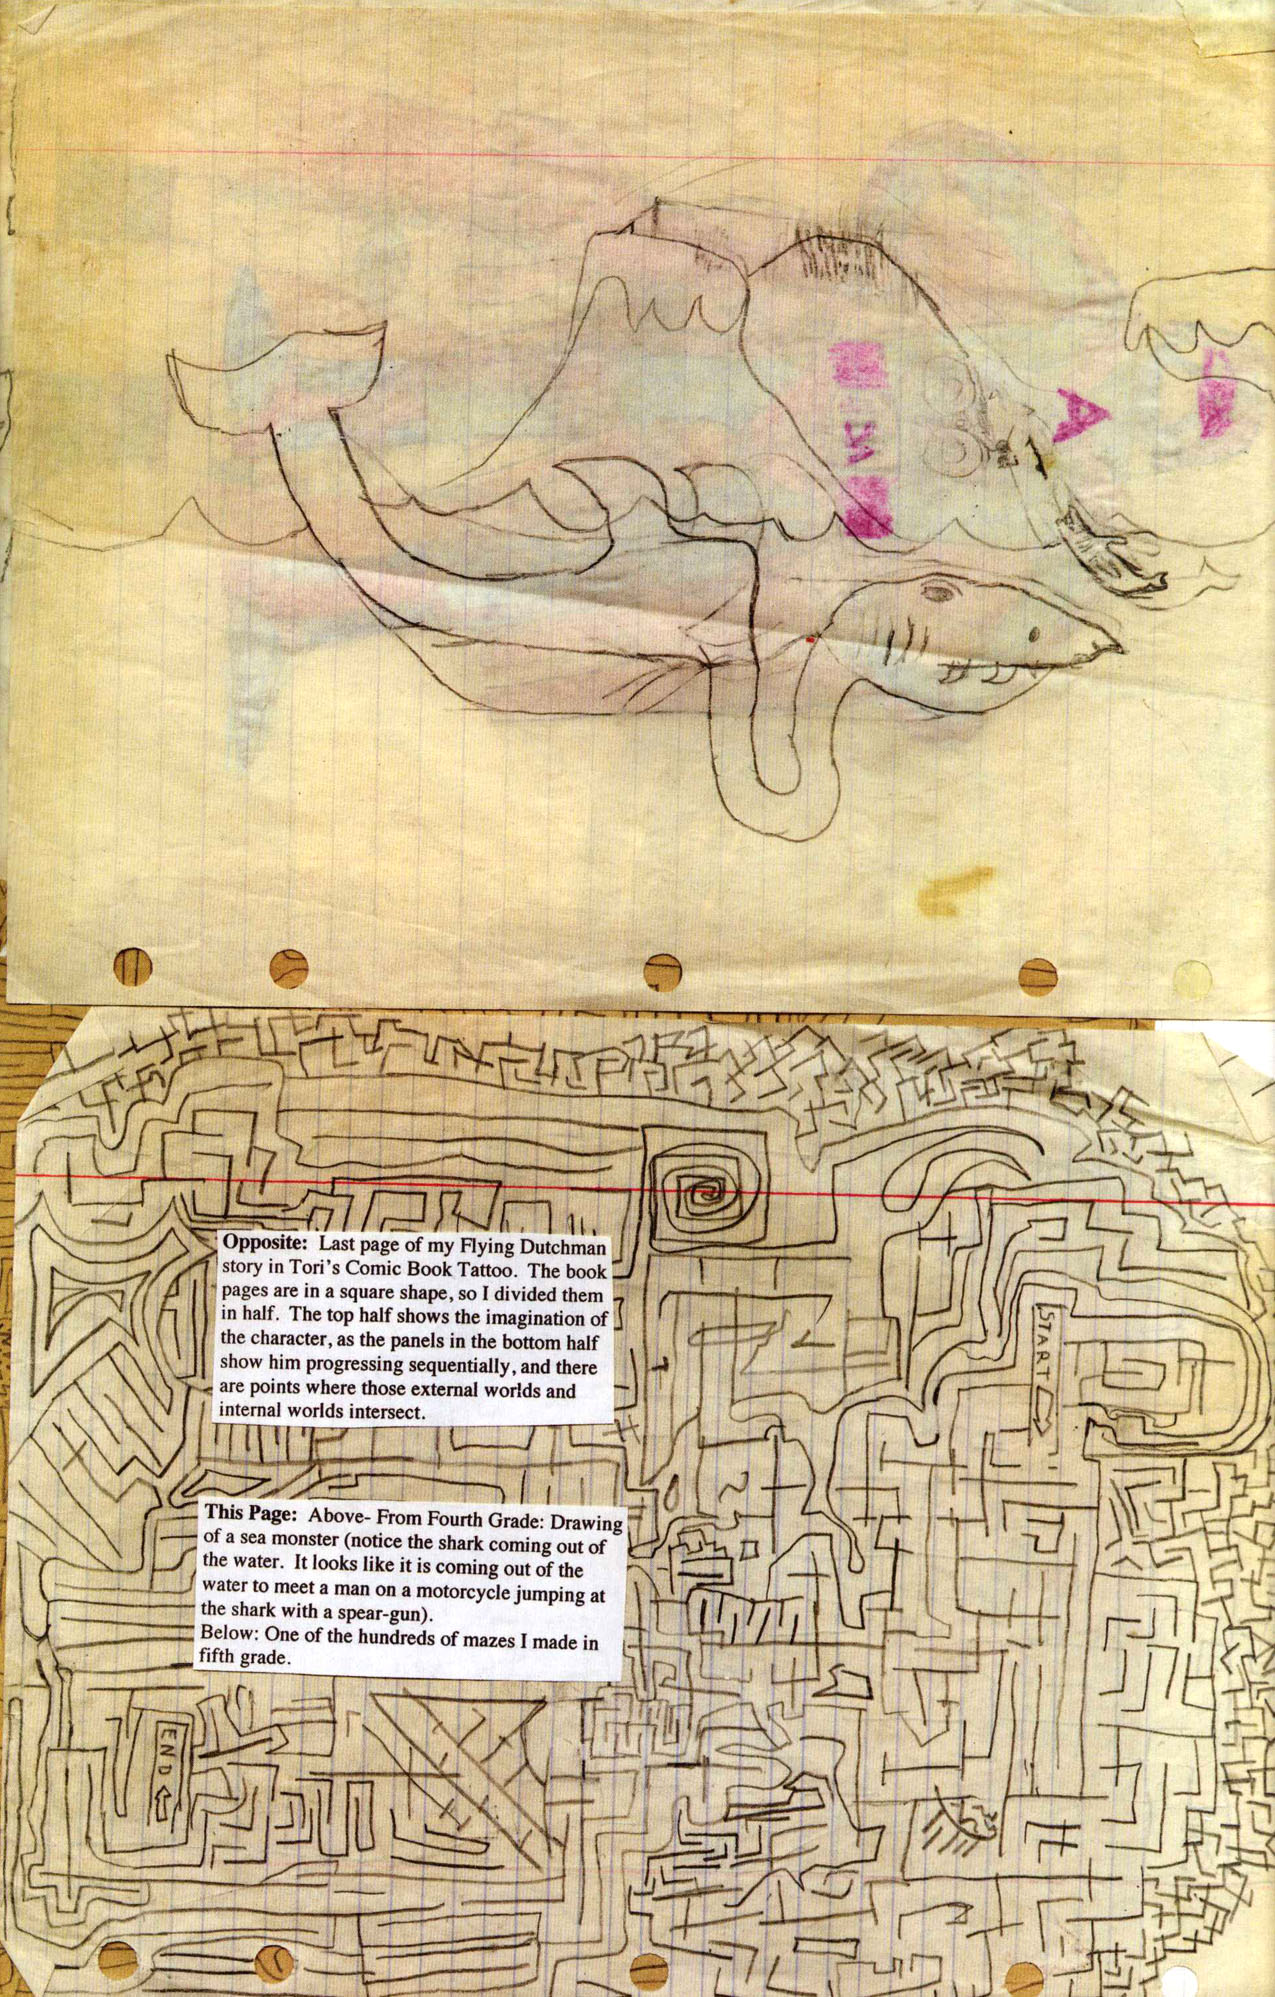 START
Opposite: Last page of my Flying Dutchman
story in Tori's Comic Book Tattoo. The book
pages are in a square shape, so I divided them
in half. The top half shows the imagination of
the character, as the panels in the bottom half
show him progressing sequentially, and there
are points where those external worlds and
internal worlds intersect.
This Page: Above- From Fourth Grade: Drawing
of a sea monster (notice the shark coming out of
the water. It looks like it is coming out of the
water to meet a man on a motorcycle jumping at
the shark with a spear-gun).
Below: One of the hundreds of mazes I made in
fifth grade.
END